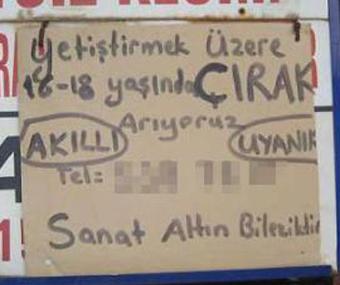 Yetiştirmek Üzere
16-18 yaşında ÇIRAK
Arıyoruz
AKILLI UYANIK
Tel=
Sanat Altın Bileziktir